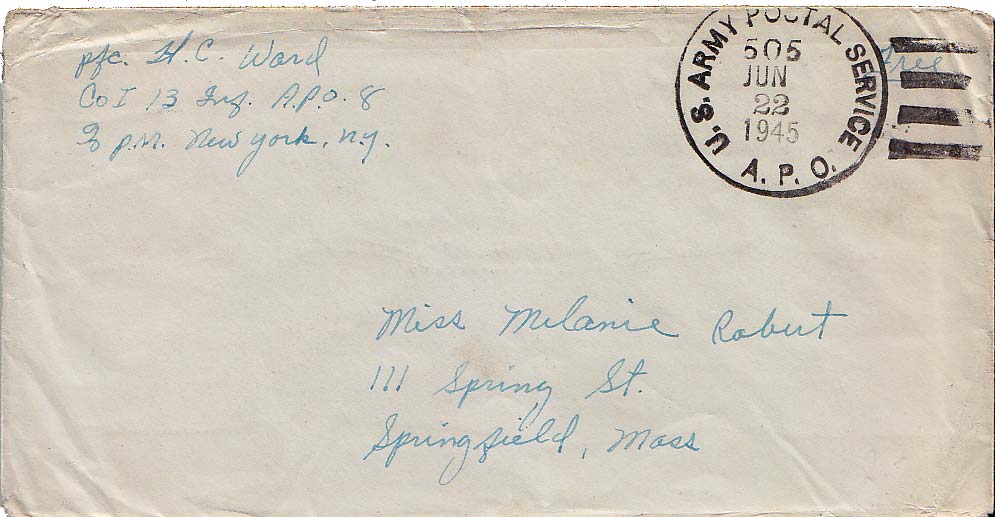 pfc. H. C. Ward
Co I 13 Inf. A.P.O. 8
% p.m. New york, n.y.
U.S. ARMY POSTAL SERVICE
505
JUN
22
1945
A.P.O.
Free
Miss Melanie Robert
111 Spring St.
Springfield, Mass